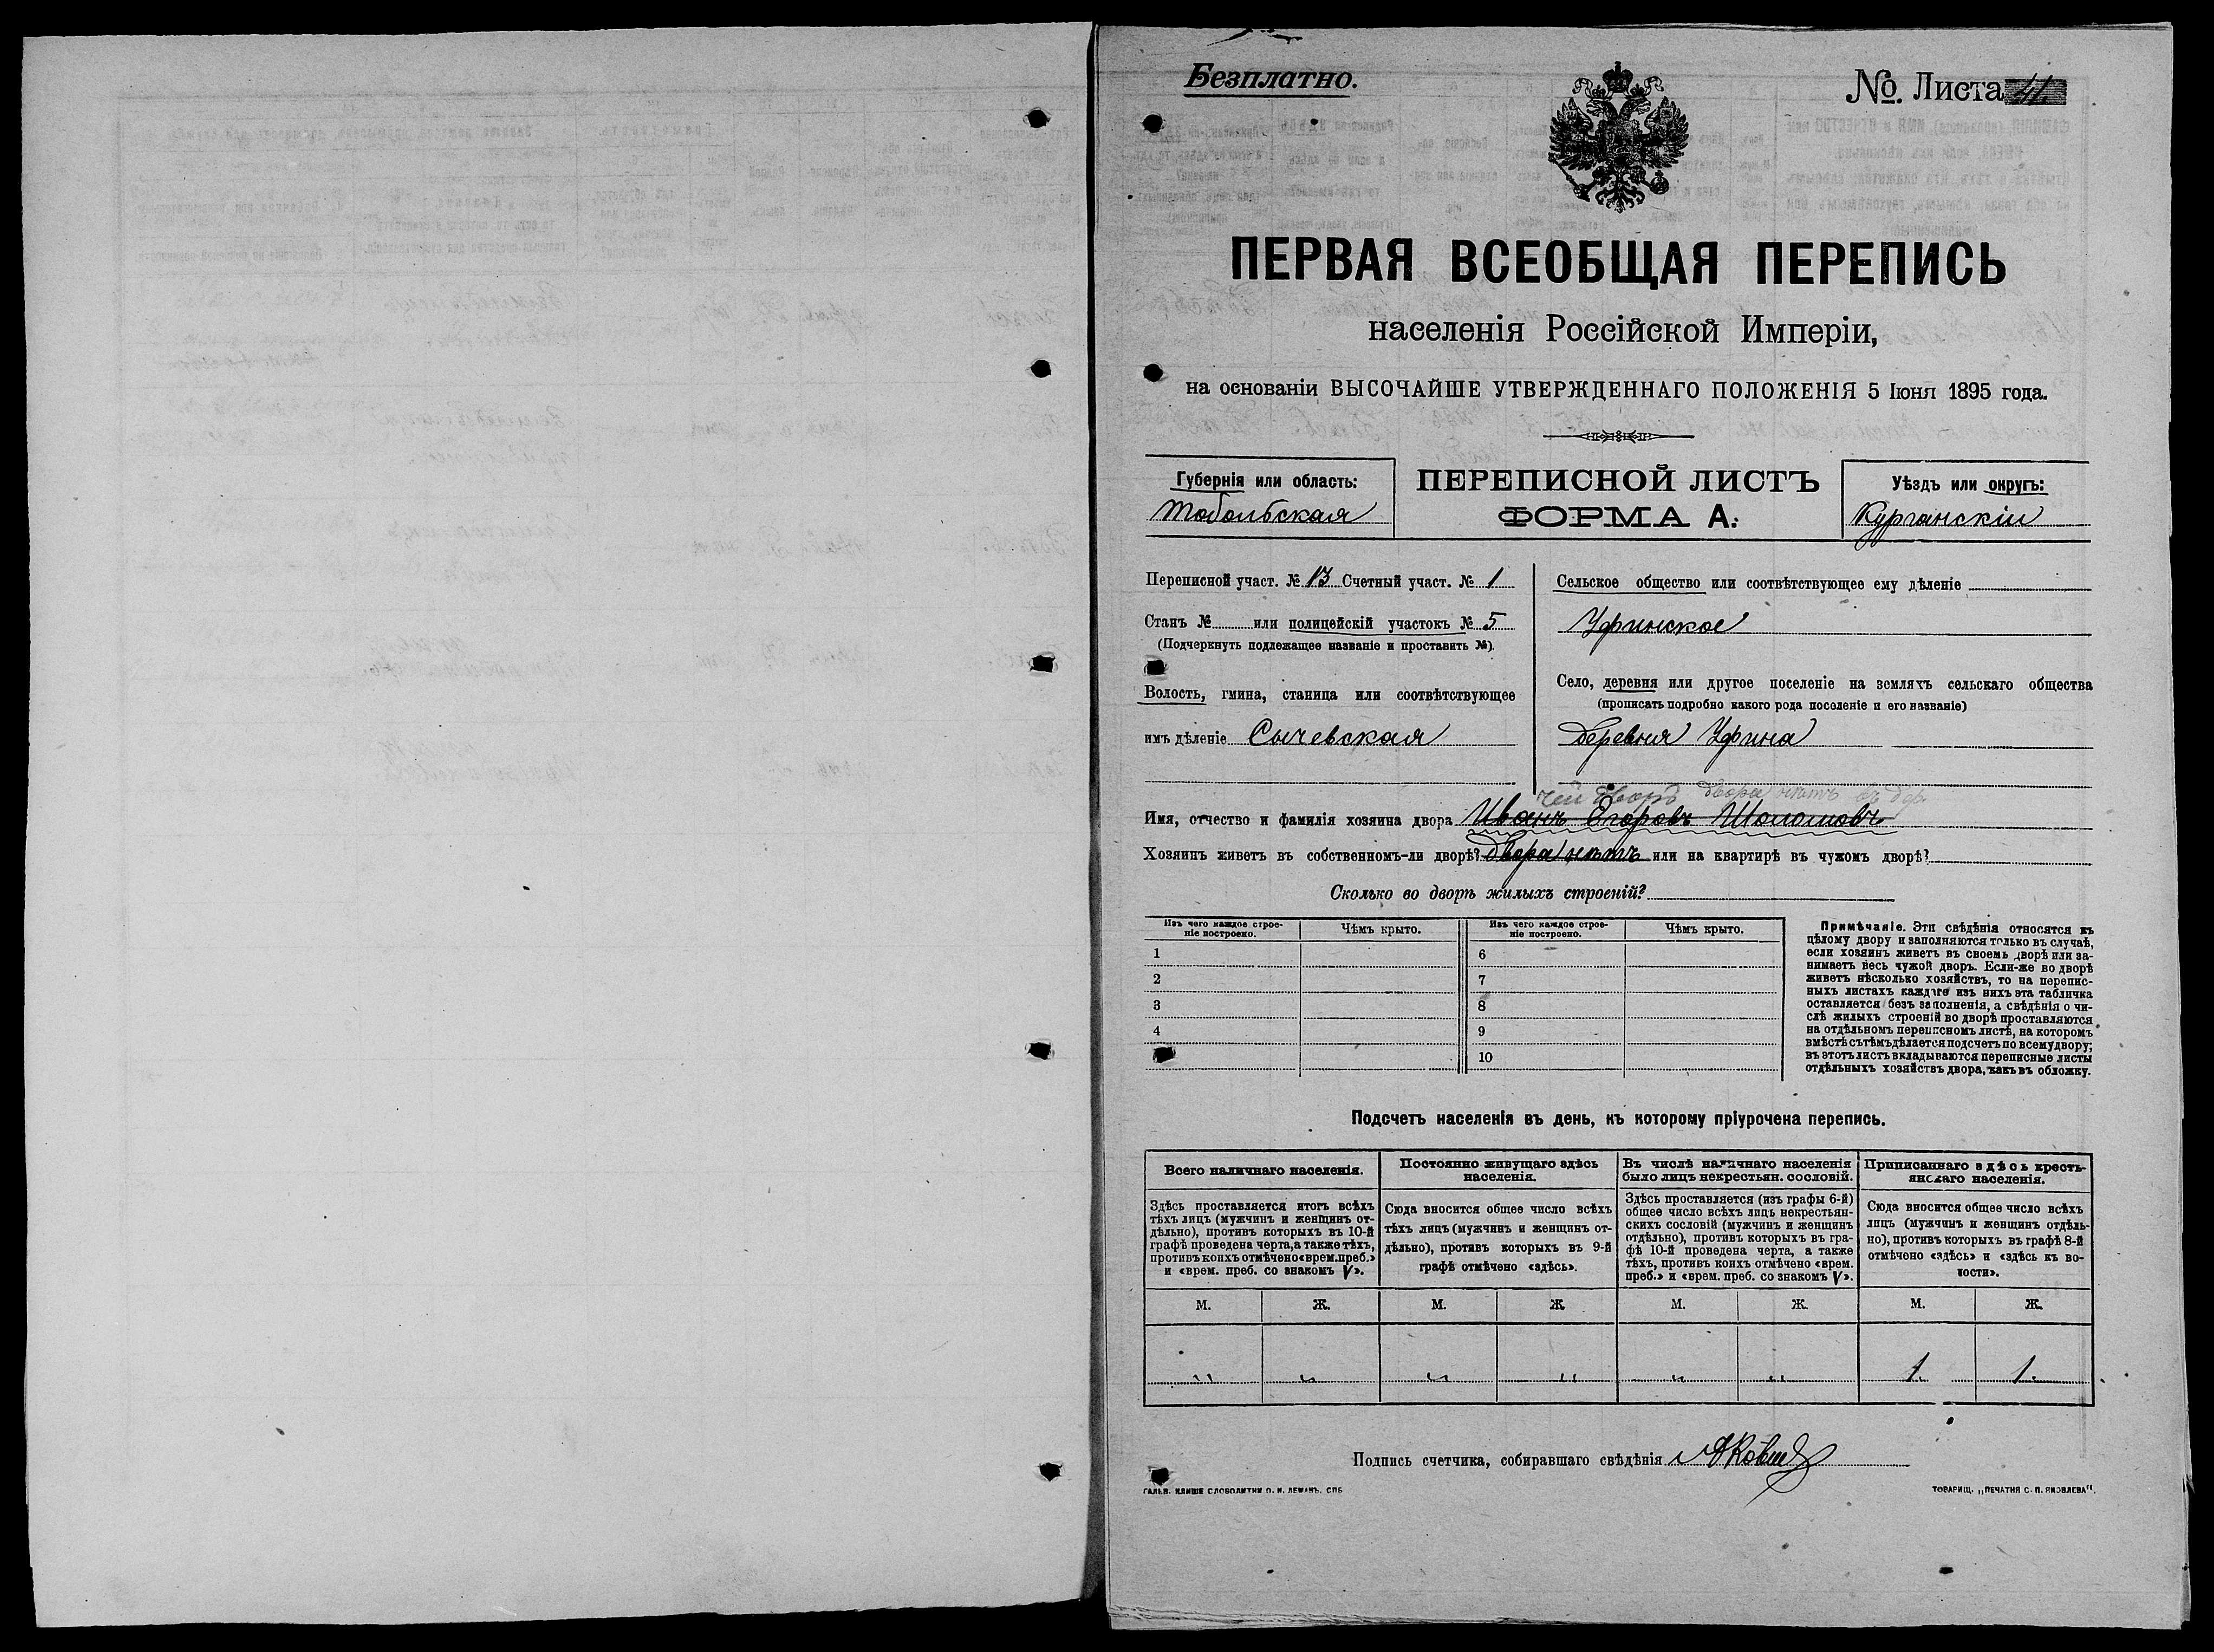 Безплатно.
№ Листа 41.
ПЕРВАЯ ВСЕОБЩАЯ ПЕРЕПИСЬ
населенія Россійской Имперіи,
на основаніи ВЫСОЧАЙШЕ УТВЕРЖДЕННАГО ПОЛОЖЕНІЯ 5 Іюня 1895 года.
Губернія или область:
Тобольская
ПЕРЕПИСНОЙ ЛИСТЪ
ФОРМА А.
Уѣздъ или округъ:
Курганскій
Переписной участ. № 13 Счетный участ. № 1
Станъ № или полицейскій участокъ № 5
(Подчеркнуть подлежащее названіе и проставить №).
Волость, гмина, станица или соотвѣтствующее
имъ дѣленіе Сычевская
Сельское общество или соотвѣтствующее ему дѣленіе
Уфинское
Село, деревня или другое поселеніе на земляхъ сельскаго общества
(прописать подробно какого рода поселеніе и его названіе)
Деревня Уфина
чей дворъ двора нѣтъ въ дер.
Имя, отчество и фамилія хозяина двора Иванъ Егоровъ
Хозяинъ живетъ въ собственномъ-ли дворѣ? двора нѣтъ или на квартирѣ въ чужомъ дворѣ?
Сколько во дворѣ жилыхъ строеній?
Изъ чего каждое строе-
ніе построено.
Чѣмъ крыто.
Изъ чего каждое строе-
ніе построено.
Чѣмъ крыто.
1 6
2 7
3 8
4 9
10
Примѣчаніе. Эти свѣдѣнія относятся къ
цѣлому двору и заполняются только въ случаѣ,
если хозяинъ живетъ въ своемъ дворѣ или за-
нимаетъ весь чужой дворъ. Если-же во дворѣ
живетъ нѣсколько хозяйствъ, то на перепис-
ныхъ листахъ каждаго изъ нихъ эта табличка
оставляется безъ заполненія, а свѣдѣнія о чи-
слѣ жилыхъ строеній во дворѣ проставляются
на отдѣльномъ переписномъ листѣ, на которомъ
вмѣстѣ съ тѣмъ дѣлается подсчетъ по всему двору;
въ этотъ листъ вкладываются переписные листы
отдѣльныхъ хозяйствъ двора, какъ въ обложку.
Подсчетъ населенія въ день, къ которому пріурочена перепись.
Всего наличнаго населенія.
Здѣсь проставляется итогъ всѣхъ
тѣхъ лицъ (мужчинъ и женщинъ от-
дѣльно), противъ которыхъ въ 10-й
графѣ проведена черта, а также тѣхъ,
противъ коихъ отмѣчено «врем. преб.»
и «врем. преб. со знакомъ V».
Постоянно живущаго здѣсь
населенія.
Сюда вносится общее число всѣхъ
тѣхъ лицъ (мужчинъ и женщинъ от-
дѣльно), противъ которыхъ въ 9-й
графѣ отмѣчено «здѣсь».
Въ числѣ наличнаго населенія
было лицъ некрестьян. сословій.
Здѣсь проставляется (изъ графы 6-й)
общее число всѣхъ лицъ некрестьян-
скихъ сословій (мужчинъ и женщинъ
отдѣльно), противъ которыхъ въ гра-
фѣ 10-й проведена черта, а также
тѣхъ, противъ коихъ отмѣчено «врем.
преб.» и «врем. преб. со знакомъ V».
Приписаннаго здѣсь кресть-
янскаго населенія.
Сюда вносится общее число всѣхъ
лицъ (мужчинъ и женщинъ отдѣль-
но), противъ которыхъ въ графѣ 8-й
отмѣчено «здѣсь» и «здѣсь къ во-
лости».
М. Ж. М. Ж. М. Ж. М. Ж.
" " " " " " 1. 1.
Подпись счетчика, собиравшаго свѣдѣнія
ГАЛЬВ. КЛИШЕ СЛОВОЛИТНИ О. И. ЛЕМАНЪ. СПБ
ТОВАРИЩ. „ПЕЧАТНЯ С. П. ЯКОВЛЕВА".